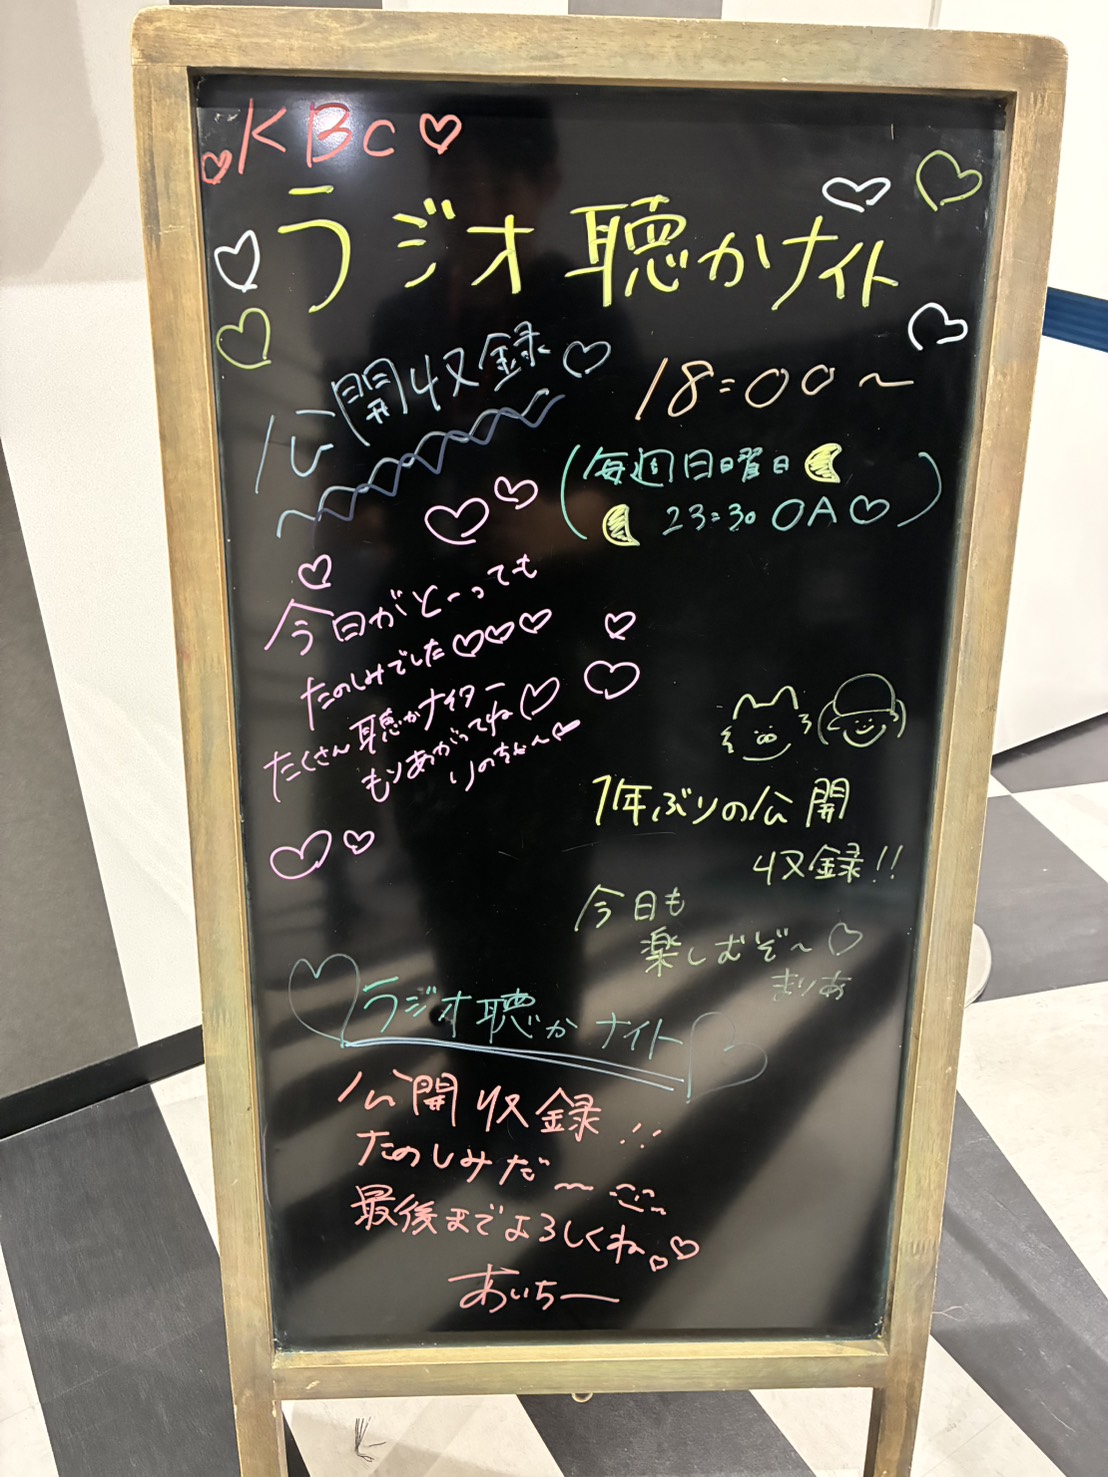 KBC
ラジオ聴かナイト
公開収録
18:00〜
(毎週日曜日
23:30 OA)
今日がとーっても
たのしみでした
たくさん聴かナイター
もりあがってね
りのちゃ〜
1年ぶりの公開
収録!!
今日も
楽しむぞ〜
まりあ
ラジオ聴かナイト
公開収録!!
たのしみだ〜
最後までよろしくね。
あいちー